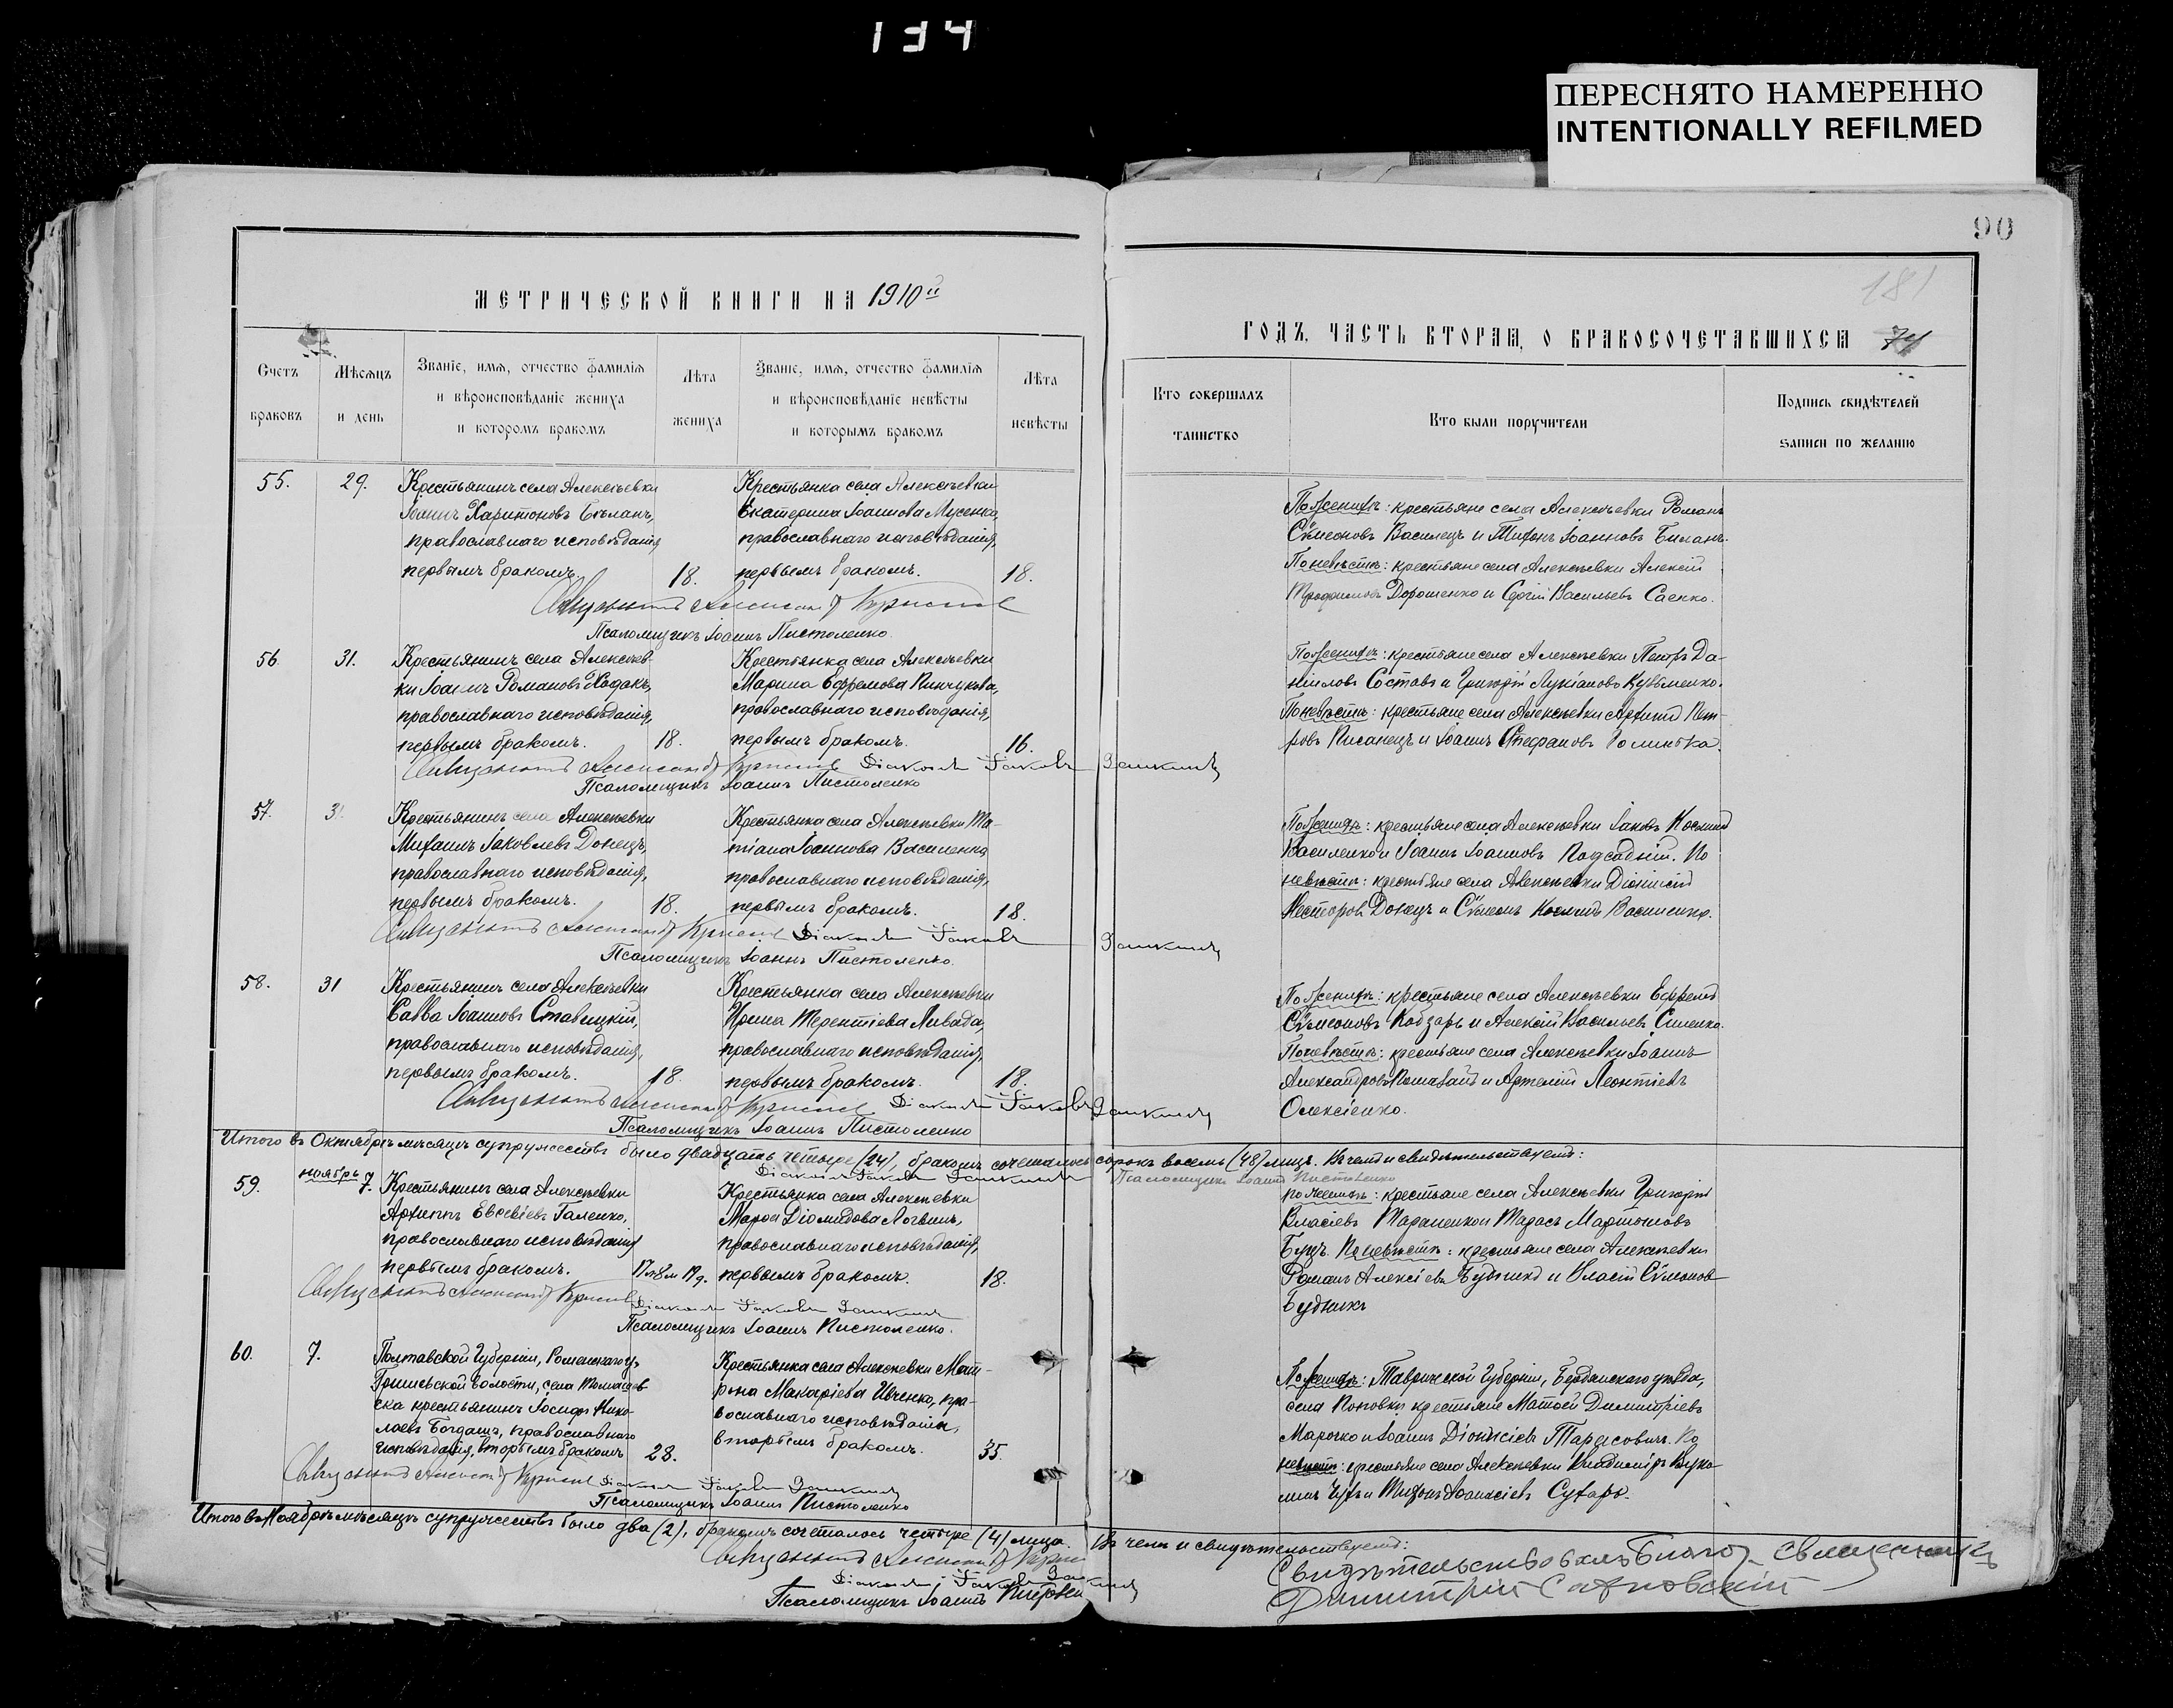 134
ПЕРЕСНЯТО НАМЕРЕННО
INTENTIONALLY REFILMED
90
181
МЕТРИЧЕСКОЙ КНИГИ НА 1910й
Счетъ браковъ
Мѣсяцъ и день
Званіе, имя, отчество фамилія
и вѣроисповѣданіе жениха
и которомъ бракомъ
Лѣта жениха
Званіе, имя, отчество фамилія
и вѣроисповѣданіе невѣсты
и которымъ бракомъ
Лѣта невѣсты
ГОДЪ, ЧАСТЬ ВТОРАЯ, О БРАКОСОЧЕТАВШИХСЯ 74
Кто совершалъ таинство
Кто были поручители
Подпись свидѣтелей
записи по желанію
55. 29.
Крестьянинъ села Алексѣевки
Іоаннъ Харитоновъ Бѣланъ,
православнаго исповѣданія
первымъ бракомъ. 18.
Крестьянка села Алексѣевки
Екатерина Іоаннова Мусенко,
православнаго исповѣданія,
первымъ бракомъ. 18.
По женихѣ: крестьяне села Алексѣевки Романъ
Сѵмеоновъ Василецъ и Тихонъ Іоанновъ Биланъ.
По невѣстѣ: крестьяне села Алексѣевки Алексій
Трофимовъ Дорошенко и Сергій Васильевъ Саенко.
Священникъ
Псаломщикъ Іоаннъ Пистоленко
56 31.
Крестьянинъ села Алексѣев-
ки Іоаннъ Романовъ Ходакъ,
православнаго исповѣданія,
первымъ бракомъ. 18.
Крестьянка села Алексѣевки
Марина Ефремова Пинчукова,
православнаго исповѣданія,
первымъ бракомъ. 16.
По женихѣ: крестьяне села Алексѣевки Петръ Да-
ніиловъ Состав и Григорій Лукіановъ Кузьменко.
По невѣстѣ: крестьяне села Алексѣевки Архипъ Пет-
ровъ Писанецъ и Іоаннъ Стефановъ
Священникъ Діаконъ Іаковъ
Псаломщикъ Іоаннъ Пистоленко
57. 31
Крестьянинъ села Алексѣевки
Михаилъ Іаковлевъ Донецъ,
православнаго исповѣданія,
первымъ бракомъ. 18.
Крестьянка села Алексѣевки Та-
тіана Іоаннова Василенко,
православнаго исповѣданія,
первымъ бракомъ. 18.
По женихѣ: крестьяне села Алексѣевки Іаковъ Косминъ
Василенко и Іоаннъ Іоанновъ Подсадній. По
невѣстѣ: крестьяне села Алексѣевки Діонисій
Несторовъ Донецъ и Сѵмеонъ Косминъ Василенко.
Священникъ Діаконъ Іаковъ
Псаломщикъ Іоаннъ Пистоленко.
58. 31
Крестьянинъ села Алексѣевки
Савва Іоанновъ Ставицкій,
православнаго исповѣданія,
первымъ бракомъ. 18.
Крестьянка села Алексѣевки
Ирина Терентіева Ливада,
православнаго исповѣданія,
первымъ бракомъ. 18.
По женихѣ: крестьяне села Алексѣевки Ефремъ
Сѵмеоновъ Кобзарь и Алексій Васильевъ Силенко.
По невѣстѣ: крестьяне села Алексѣевки Іоаннъ
Александровъ и Артемій Леонтіевъ
Олексіенко.
Священникъ Діаконъ Іаковъ
Псаломщикъ Іоаннъ Пистоленко
Итого въ Октябрѣ мѣсяцѣ супружествъ было двадцать четыре (24), бракомъ сочеталось сорокъ восемь (48) лицъ. Въ чемъ и свидѣтельствуемъ:
Діаконъ Іаковъ Псаломщикъ Іоаннъ Пистоленко
59. ноябрь 7.
Крестьянинъ села Алексѣевки
Архиппъ Евсевіевъ Галенко,
православнаго исповѣданія
первымъ бракомъ. 17 л 8 м 19 д.
Крестьянка села Алексѣевки
Марѳа Діомидова Логвинъ,
православнаго исповѣданія,
первымъ бракомъ. 18.
по женихѣ: крестьяне села Алексѣевки Григорій
Власіевъ Тараненко и Тарасъ Мартиновъ
Буцъ. По невѣстѣ: крестьяне села Алексѣевки
Романъ Алексіевъ Будникъ и Власій Сѵмеонов
Будникъ
Священникъ
Діаконъ Іаковъ
Псаломщикъ Іоаннъ Пистоленко.
60. 7.
Полтавской Губерніи, Роменскаго у.
волости, села
ска крестьянинъ Іосифъ Нико-
лаевъ Богданъ, православнаго
исповѣданія, вторымъ бракомъ 28.
Крестьянка села Алексѣевки Мат-
рона Макаріева Ивченко, пра-
вославнаго исповѣданія,
вторымъ бракомъ. 35.
По женихѣ: Таврической Губерніи, Бердянскаго уѣзда,
села Поповки крестьяне Матѳей Димитріевъ
Марочко и Іоаннъ Діонисіевъ Тарасовичъ. По
невѣстѣ: крестьяне села Алексѣевки Владиміръ Вуко-
ловъ и Тихонъ Сухарь.
Священникъ Діаконъ Іаковъ
Псаломщикъ Іоаннъ Пистоленко
Итого въ Ноябрѣ мѣсяцѣ супружествъ было два (2), бракомъ сочеталось четыре (4) лица. Въ чемъ и свидѣтельствуемъ:
Священникъ
Діаконъ Іаковъ
Псаломщикъ Іоаннъ
Свидѣтельствовалъ Благоч. Священникъ
Димитрій Сахновскій